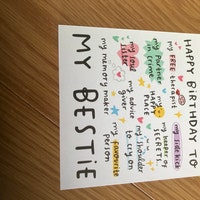 HAPPY BIRTHDAY TO
my FREE therapist
my sidekick
my partner
in crime
my
HAPPY
PLACE
my keeper of
SECRETS
my soul
sister
my advice
giver
my shoulder
to cry on
my memory maker
my favourite
person
MY BESTiE